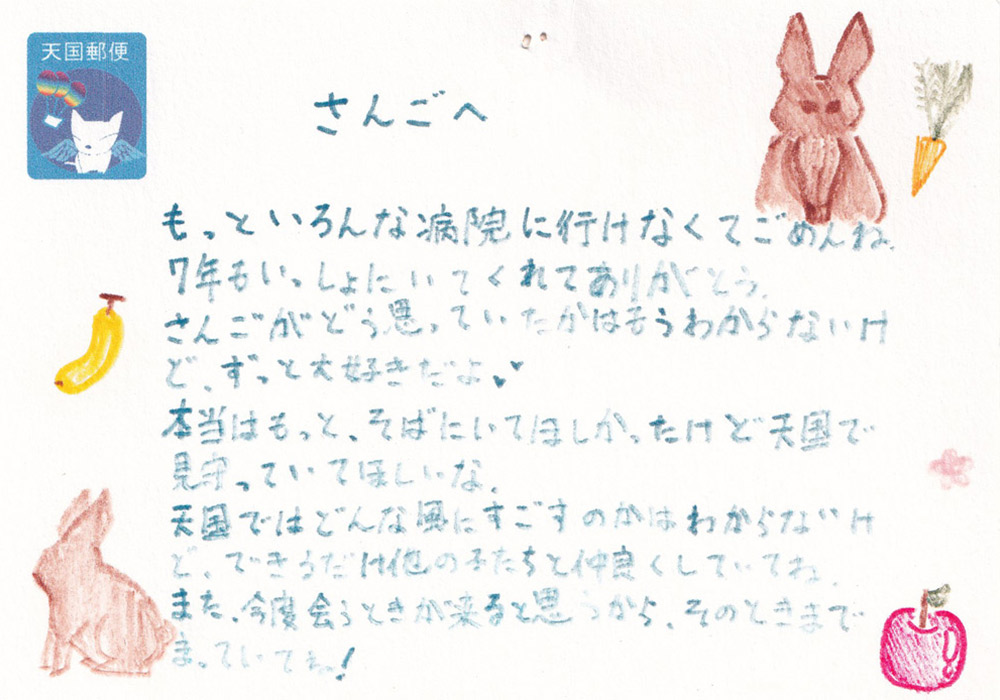 天国郵便
さんごへ
もっといろんな病院に行けなくてごめんね。
7年もいっしょにいてくれてありがとう。
さんごがどう思っていたかはもうわからないけ
ど、ずっと大好きだよ
本当はもっと、そばにいてほしかったけど天国で
見守っていてほしいな。
天国ではどんな風にすごすのかはわからないけ
ど、できるだけ他の子たちと仲良くしていてね。
また、今度会うときが来ると思うから、そのときまで
まっていてね!